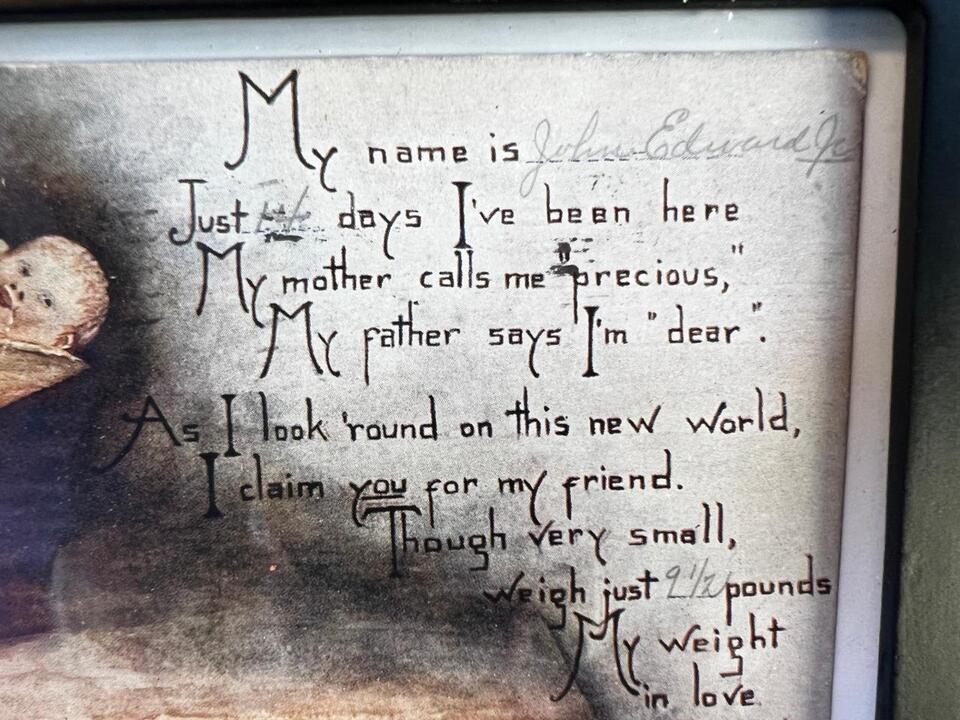 My name is John Edward Jr
Just days I've been here
My mother calls me "precious,"
My father says I'm "dear".
As I look 'round on this new world,
I claim you for my friend.
Though very small,
weigh just 9½ pounds
My weight
in love